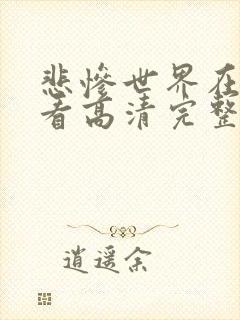 悲惨世界在
看高清完整
逍遥余